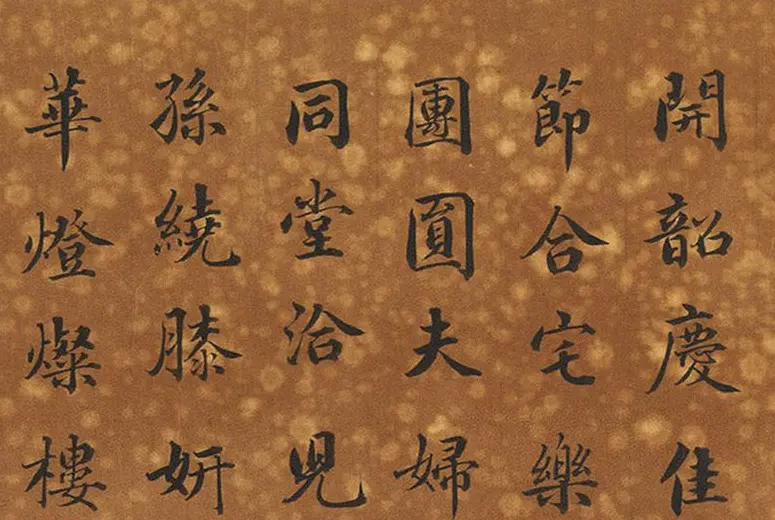 開韶慶佳
節合宅樂
團圓夫婦
同堂洽兒
孫繞膝妍
華燈燦樓